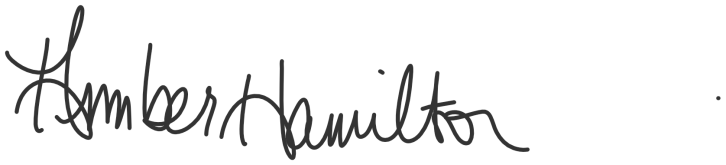 Kimber Hamilton